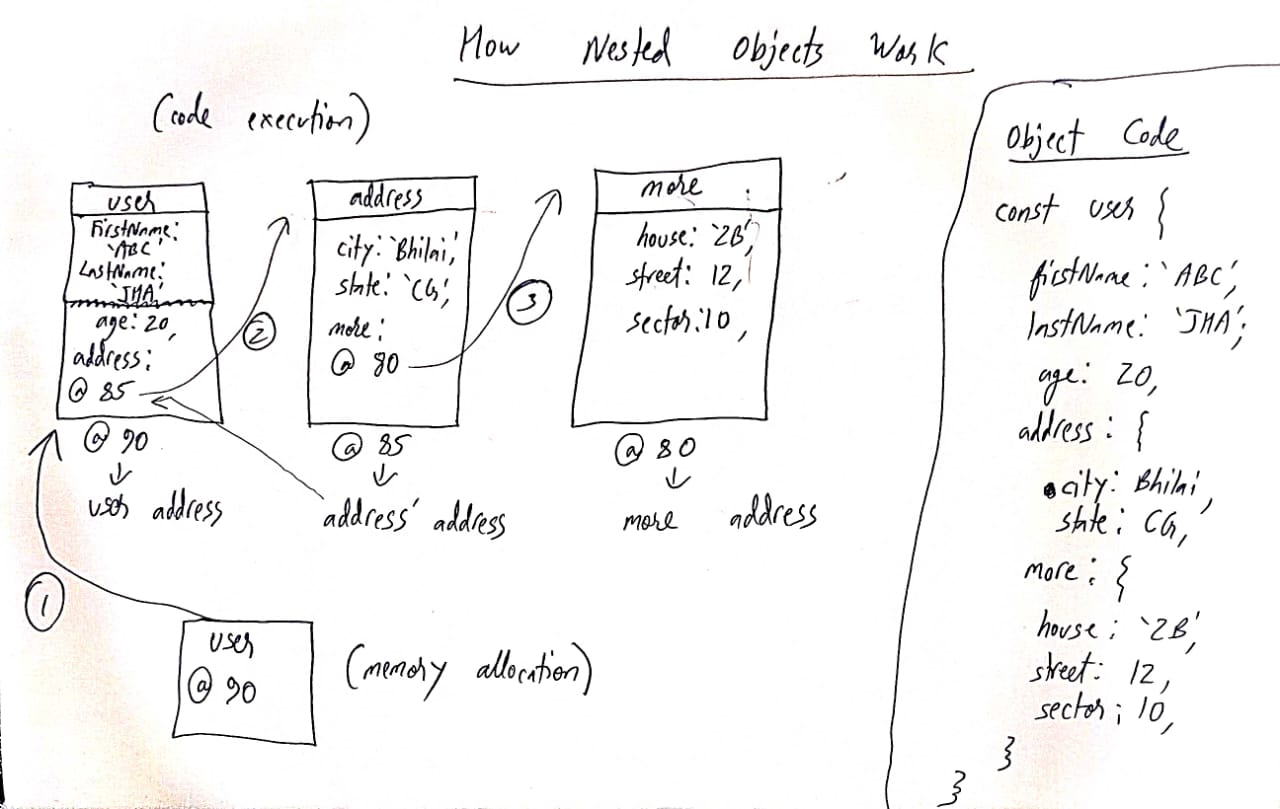 How Nested Objects Work
(code execution)
user
FirstName:
'ABC'
LastName:
'JHA'
age: 20,
address:
@ 85
@ 90
user address
address
city: 'Bhilai',
state: 'CG',
more:
@ 80
@ 85
address' address
more
house: '2B',
street: 12,
sector: 10,
@ 80
more address
1
2
3
user
@ 90
(memory allocation)
Object Code
const user {
firstName: 'ABC',
lastName: 'JHA';
age: 20,
address: {
city: Bhilai,
state: CG,
more: {
house: '2B',
street: 12,
sector; 10,
}
}